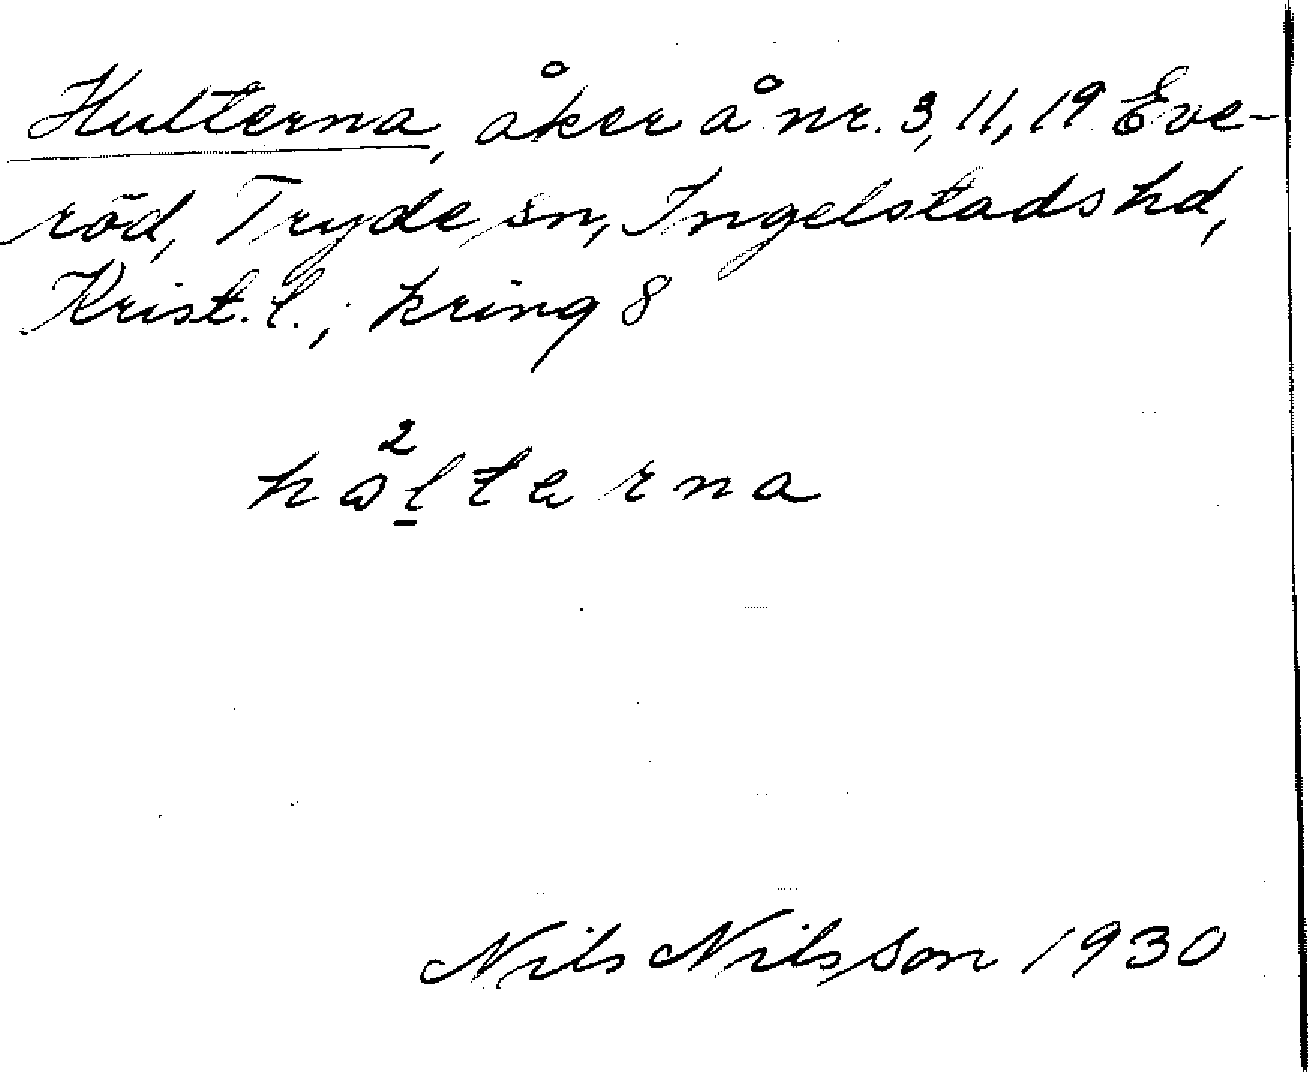 Hulterna, åker å nr. 3, 11, 19 Eve-
röd, Tryde sn, Ingelstads hd,
Krist. l.; kring 8
Nils Nilsson 1930